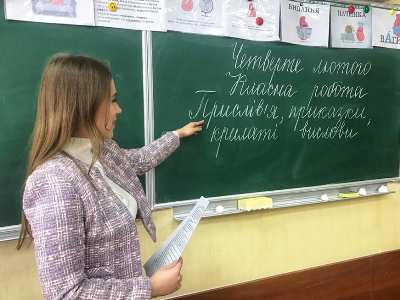 Четверте лютого
Класна робота
Прислів'я, приказки,
крилаті вислови